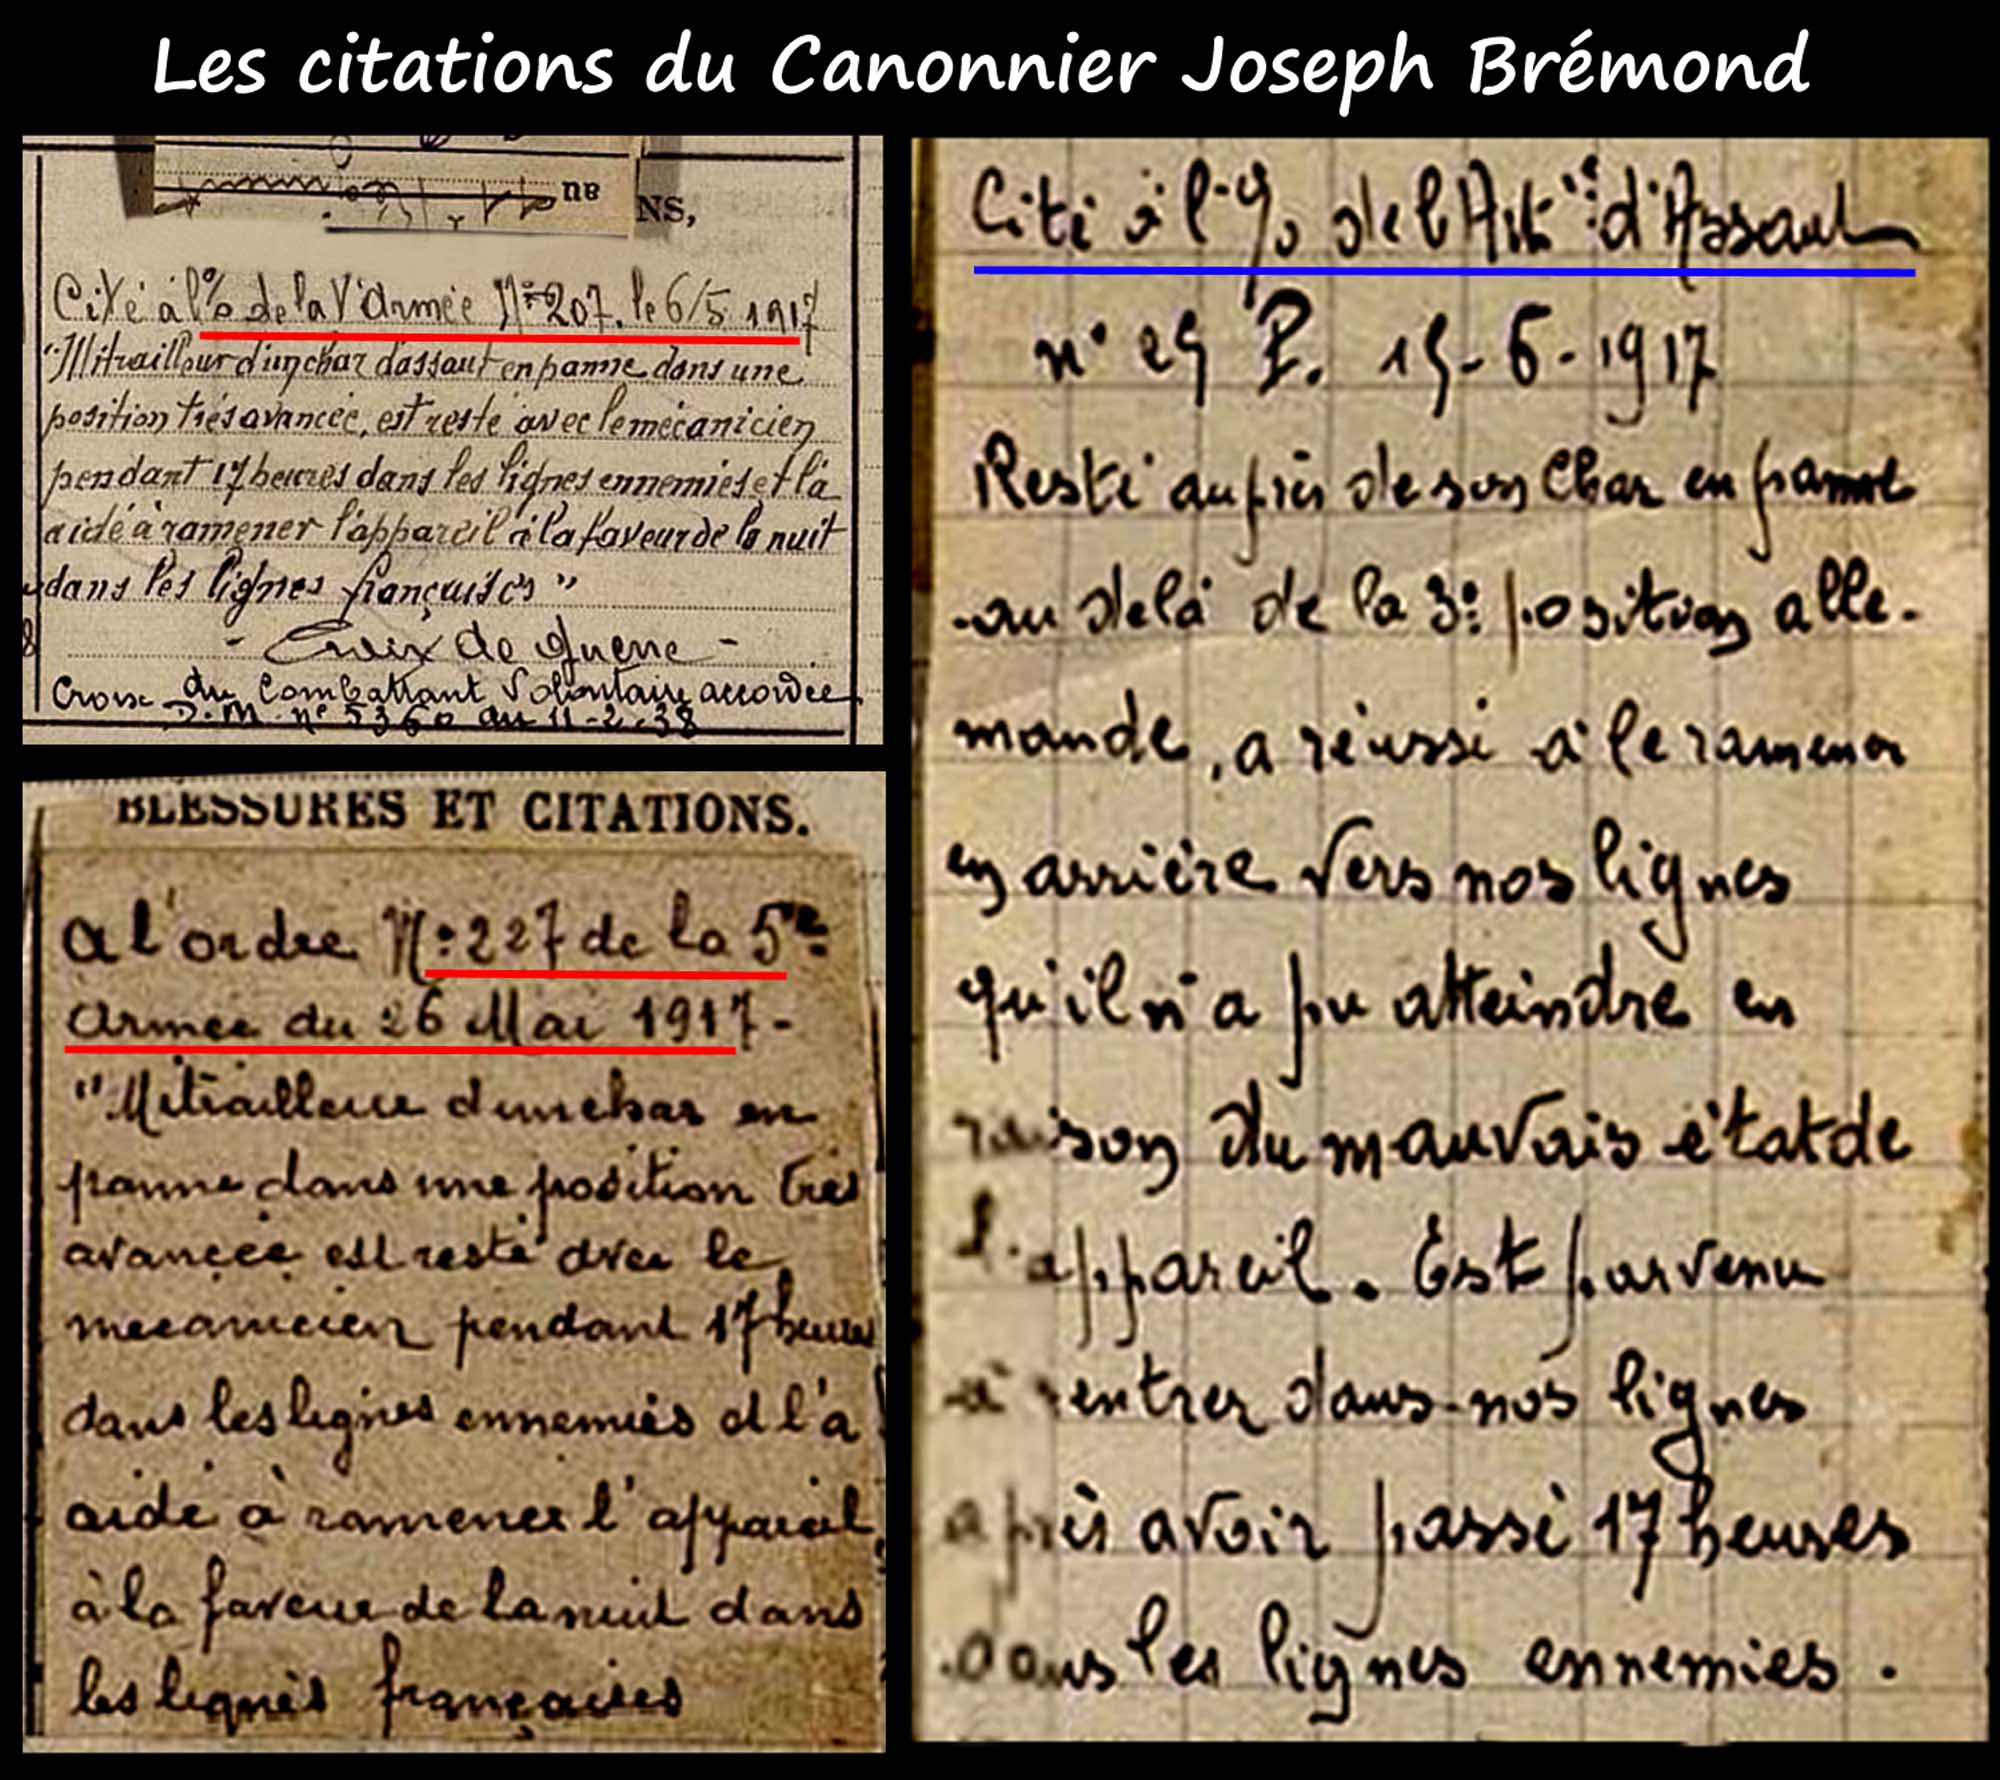 Les citations du Canonnier Joseph Brémond
au
NS,
Cité à l'% de la V Armée N° 207. le 6/5 1917
"Mitrailleur d'un char d'assaut en panne dans une
position très avancée, est resté avec le mécanicien
pendant 17 heures dans les lignes ennemies et l'a
aidé à ramener l'appareil à la faveur de la nuit
dans les lignes françaises"
- Croix de guerre -
Croix du Combattant Volontaire accordée
D.M. n° 5360 du 11-2-38
BLESSURES ET CITATIONS.
A l'ordre N° 227 de la 5me
Armée du 26 Mai 1917-
"Mitrailleur d'un char en
panne dans une position très
avancée est resté avec le
mécanicien pendant 17 heures
dans les lignes ennemies et l'a
aidé à ramener l'appareil
à la faveur de la nuit dans
les lignes françaises
Cité à l'% de l'Artie d'Assaut
n° 29 P. 15-6-1917
Resté auprès de son Char en panne
au delà de la 3e position alle-
mande, a réussi à le ramener
en arrière vers nos lignes
qu'il n'a pu atteindre en
raison du mauvais état de
l'appareil. Est parvenu
à rentrer dans nos lignes
après avoir passé 17 heures
dans les lignes ennemies.